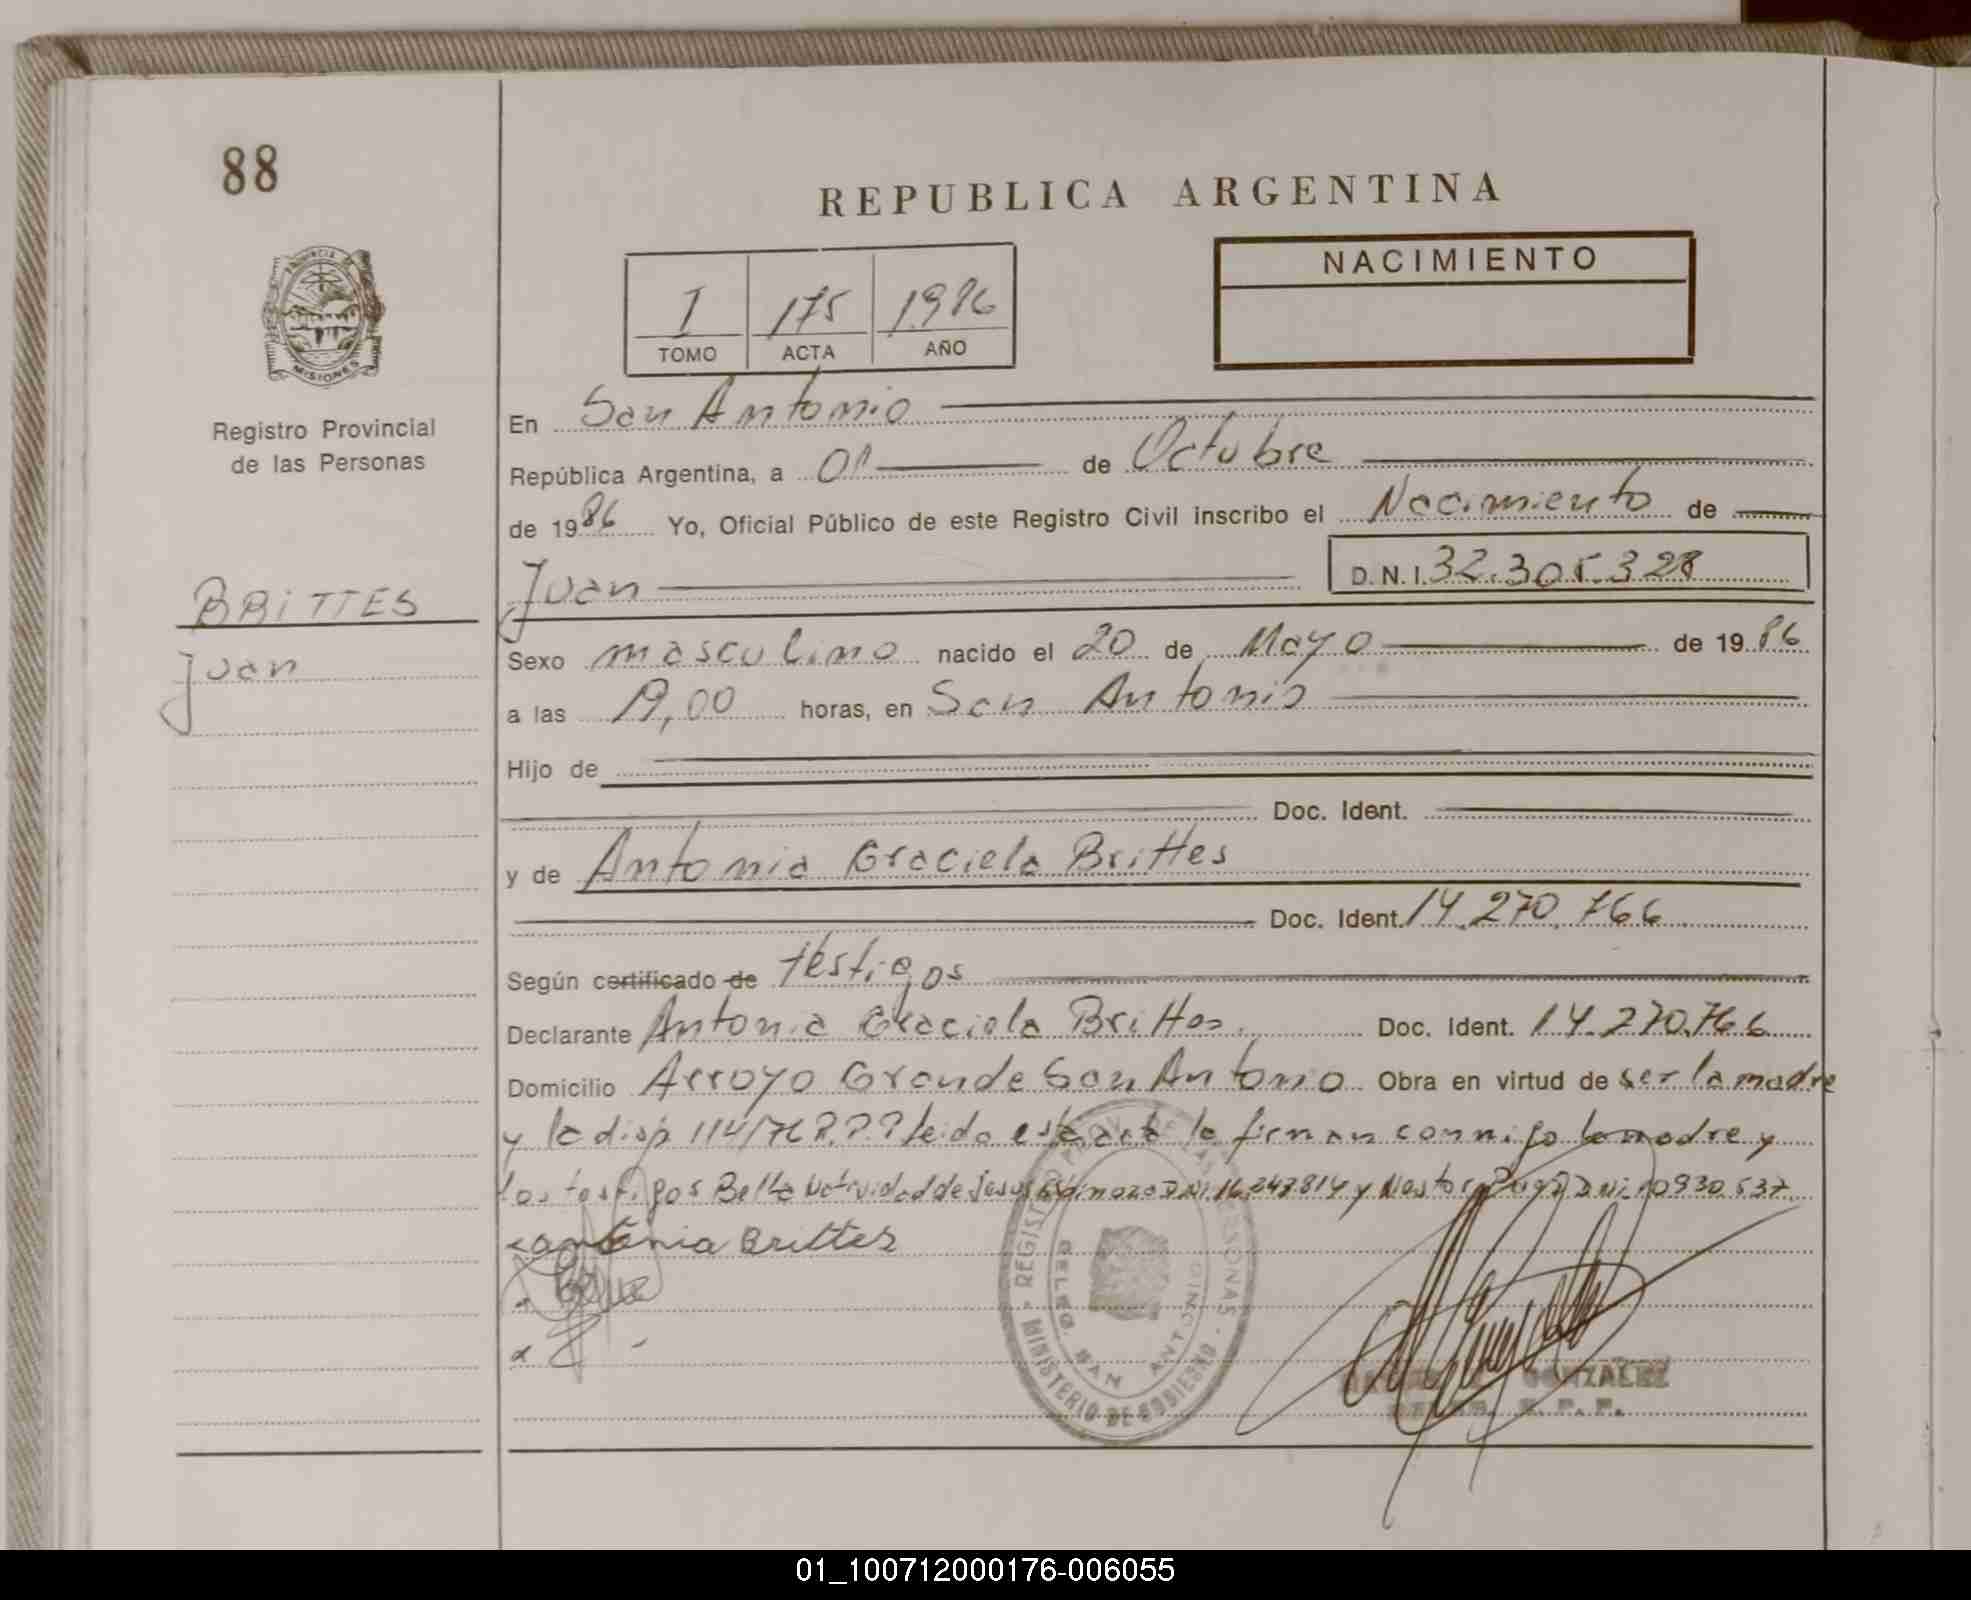 88
REPUBLICA ARGENTINA
NACIMIENTO
I 175 1986
TOMO ACTA AÑO
PROVINCIA DE
MISIONES
Registro Provincial
de las Personas
BRITTES
Juan
En San Antonio
República Argentina, a 01 de Octubre
de 1986 Yo, Oficial Público de este Registro Civil inscribo el Nacimiento de
Juan D.N.I. 32.305.328
Sexo masculino nacido el 20 de Mayo de 1986
a las 19,00 horas, en San Antonio
Hijo de
Doc. Ident.
y de Antonia Graciela Brittes
Doc. Ident. 14.270.766
Según certificado de testigos
Declarante Antonia Graciela Brittes. Doc. Ident. 14.270.766
Domicilio Arroyo Grande San Antonio Obra en virtud de ser la madre
y la disp 114/76 R.P.P leida esta acta la firman conmigo la madre y
los testigos Bella Natividad de Jesus DNI 16.247814 y Nestor Puga DNI 10930.537
antonia Brittes
REGISTRO PROV. DE LAS PERSONAS
DELEG. SAN ANTONIO
MINISTERIO DE GOBIERNO
GONZALEZ
R. P. P.
01_100712000176-006055